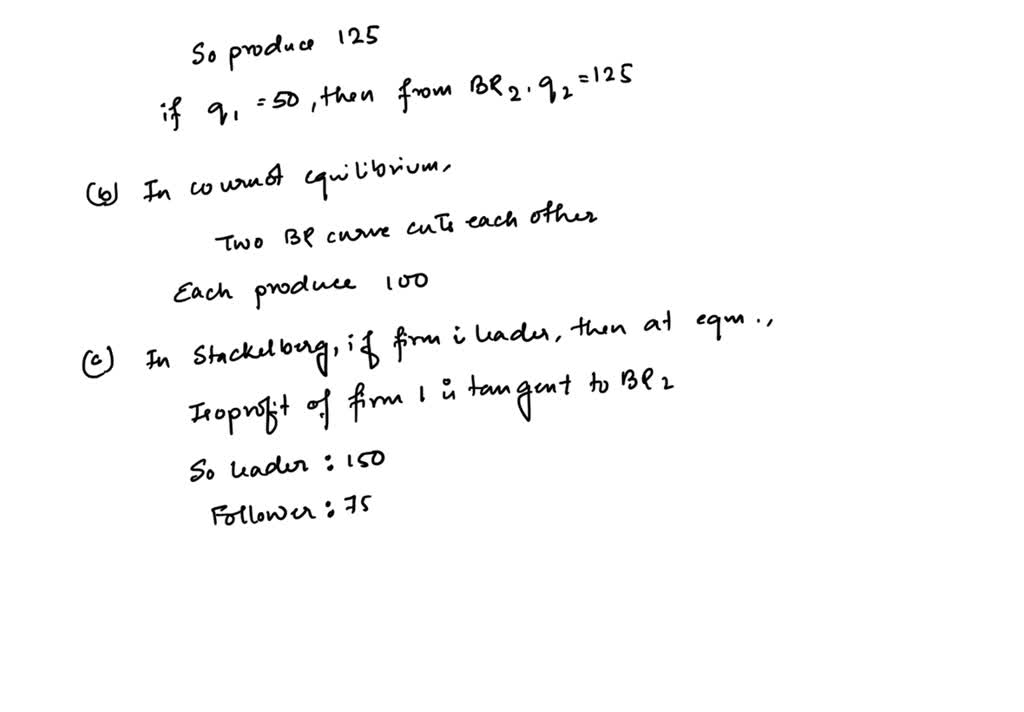 So produce 125
if q1 = 50, then from BR2. q2 = 125
(b) In cournot equilibrium,
Two BR curve cuts each other
Each produce 100
(c) In Stackelberg, if firm i leader, then at eqm.,
Isoprofit of firm 1 is tangent to BR2
So leader : 150
Follower : 75